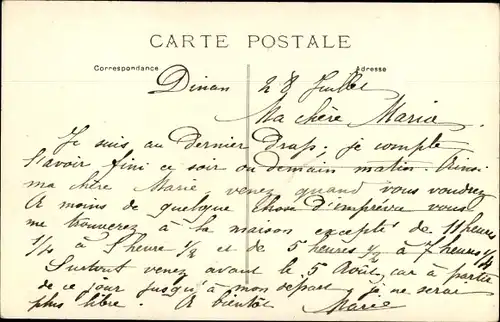 CARTE POSTALE
Correspondance
Adresse
Dinan 28 Juillet
Ma chère Marie
Je suis au Dernier Drap. je compte
l'avoir fini ce soir ou demain matin. Ainsi
ma chère Marie, venez quand vous voudrez
A moins de quelque chose d'imprévu vous
me trouverez à la maison excepté de 11 heures
1/4 à heure 1/2 et de 5 heures 1/2 à 7 heures 1/4
Surtout venez avant le 5 Août, car à partir
de ce jour jusqu'à mon départ je ne serai
plus libre. A bientôt Marie